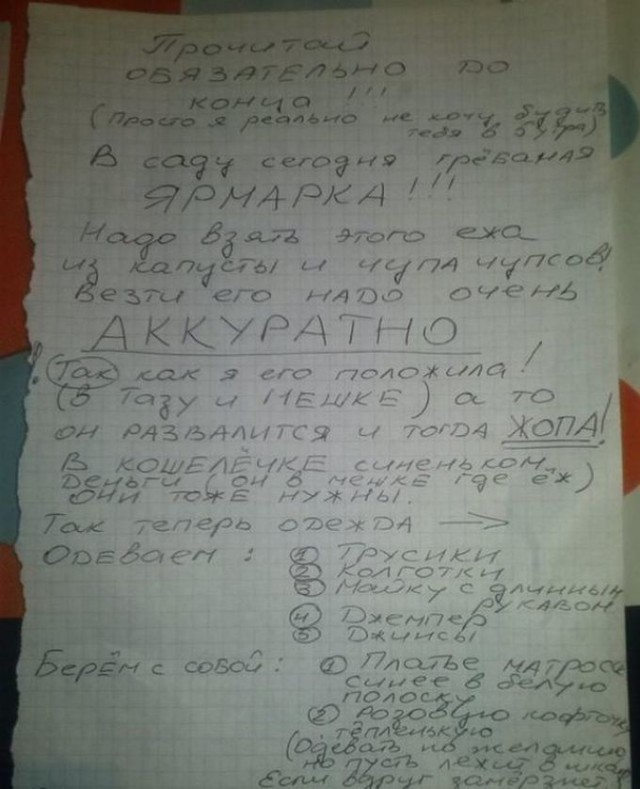 Прочитай
ОБЯЗАТЕЛЬНО ДО
КОНЦА !!!
(Просто я реально не хочу будить
тебя в 5 утра)
В саду сегодня грёбаная
ЯРМАРКА!!!
Надо взять этого ежа
из капусты и чупа чупсов!
Везти его НАДО очень
АККУРАТНО
! Так как я его положила!
(В ТАЗУ и МЕШКЕ) а то
он РАЗВАЛИТСЯ и тогда ЖОПА!
В КОШЕЛЁЧКЕ синеньком
Деньги (он в мешке где ёж)
ОНИ ТОЖЕ НУЖНЫ.
Так теперь одежда →
Одеваем: ① Трусики
② Колготки
③ Майку с длинным
рукавом
④ Джемпер
⑤ Джинсы
Берём с собой: ① Платье матроска
синее в белую
полоску
② Розовую кофточку
тёпленькую
(Одевать по желанию
но пусть лежит в шкафу
Если вдруг замёрзнет